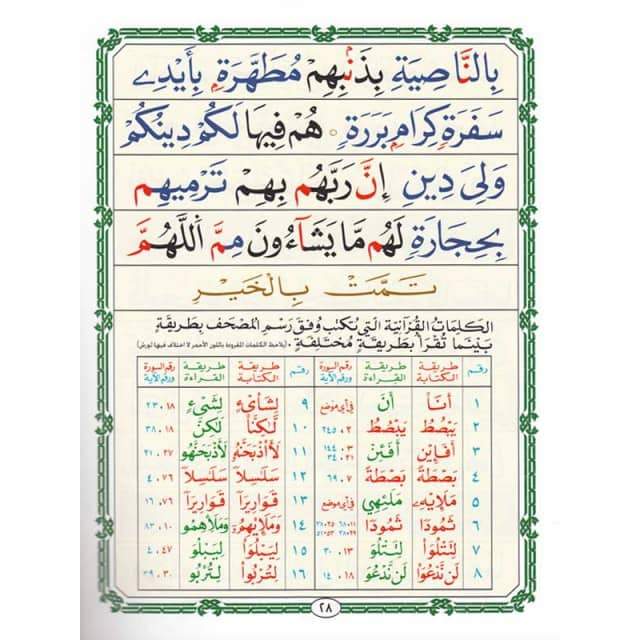 بِالنَّاصِيَةِ بِذَنْبِهِمْ مُطَهَّرَةٍ بِأَيْدِے
سَفَرَةٍ كِرَامٍ بَرَرَةٍ هُمْ فِيهَا لَكُمْ دِينُكُمْ
وَلِيَ دِينِ إِنَّ رَبَّهُم بِهِمْ تَرْمِيهِم
بِحِجَارَةٍ لَهُم مَا يَشَآءُونَ مِمَّ اَللَّهُمَّ
تَمَّتْ بِالْخَيْرِ
الكَلِمَاتُ القُرْآنِيَّة الَّتِي تُكْتَبُ وُفْقَ رَسْمِ المُصْحَفِ بِطَرِيقَةٍ
بَيْنَمَا تُقْرَأُ بِطَرِيقَةٍ مُخْتَلِفَةٍ (يلاحظ الكلمات المفرودة باللون الأحمر لا اختلاف فيها لورش)
رقم طريقة الكتابة طريقة القراءة رقم السورة ورقم الآية رقم طريقة الكتابة طريقة القراءة رقم السورة ورقم الآية
١ أَنَا أَنَ في أي موضع ٩ لِشَاْيْءٍ لِشَيْءٍ ١٨ ٠ ٢٣
٢ يَبْصُطُ يَبْسُطُ ٢ ٠ ٢٤٥ ١٠ لَكِنَّا لَكِنَّ ١٨ ٠ ٣٨
٣ أَفَإِيْن أَفَئِنْ ٣ ٠ ١٤٤ ٢١ ٠ ٣٤ ١١ لَأَاْذْبَحَنَّهُ لَأَذْبَحَنَّهُو ٢٧ ٠ ٢١
٤ بَصْطَةً بَصْطَةً ٧ ٠ ٦٩ ١٢ سَلَسِلَاْ سَلَسِلَا ٧٦ ٠ ٤
٥ مَلَإِيْهِ مَلَئِهِي في أي موضع ١٣ قَوَارِيرَاْ قَوَارِيرَا ٧٦ ٠ ١٦
٦ ثَمُودَاْ ثَمُودَا ١١ ٠ ٦٨ ٢٥ ٠ ٣٨ ٢٩ ٠ ٣٨ ٥٣ ٠ ٥١ ١٤ وَمَلَإِيْهِمُ وَمَلَاهِمُو ١٠ ٠ ٨٣
٧ لِتَتْلُوَاْ لِتَتْلُوَ ١٣ ٠ ٣٠ ١٥ لِيَبْلُوَاْ لِيَبْلُوَ ٤٧ ٠ ٤
٨ لَن نَّدْعُوَاْ لَن نَّدْعُوَ ١٨ ٠ ١٤ ١٦ لِتُرْبُواْ لِتُرْبُو ٣٠ ٠ ٣٩
٢٨